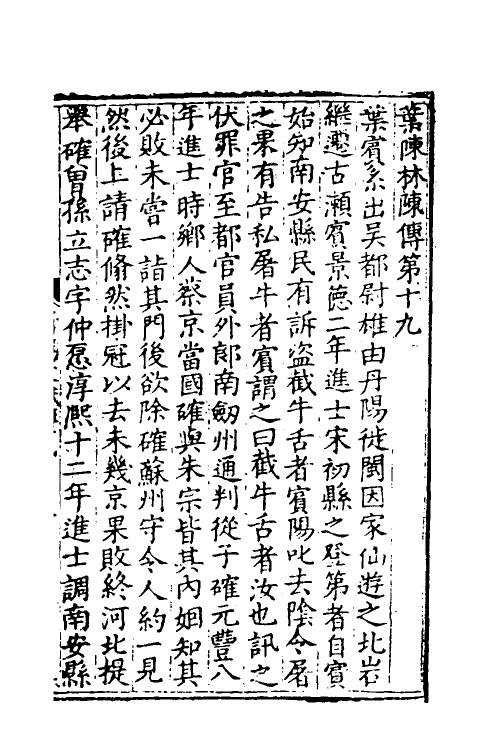 葉陳林陳傳第十九
葉賓系出吴都尉雄由丹陽徙閩因家仙遊之北岩
繼遷古瀬賓景德二年進士宋初縣之登第者自賓
始知南安縣民有訴盗截牛舌者賓陽叱去陰令屠
之果有告私屠牛者賓謂之曰截牛舌者汝也訊之
伏罪官至都官員外郎南劔州通判從子確元豐八
年進士時鄉人蔡京當國確與朱宗皆其内姻知其
必敗未嘗一詣其門後欲除確蘇州守令人約一見
然後上請確翛然掛冠以去未幾京果敗終河北提
舉確曾孫立志字仲㤙淳熙十二年進士調南安縣